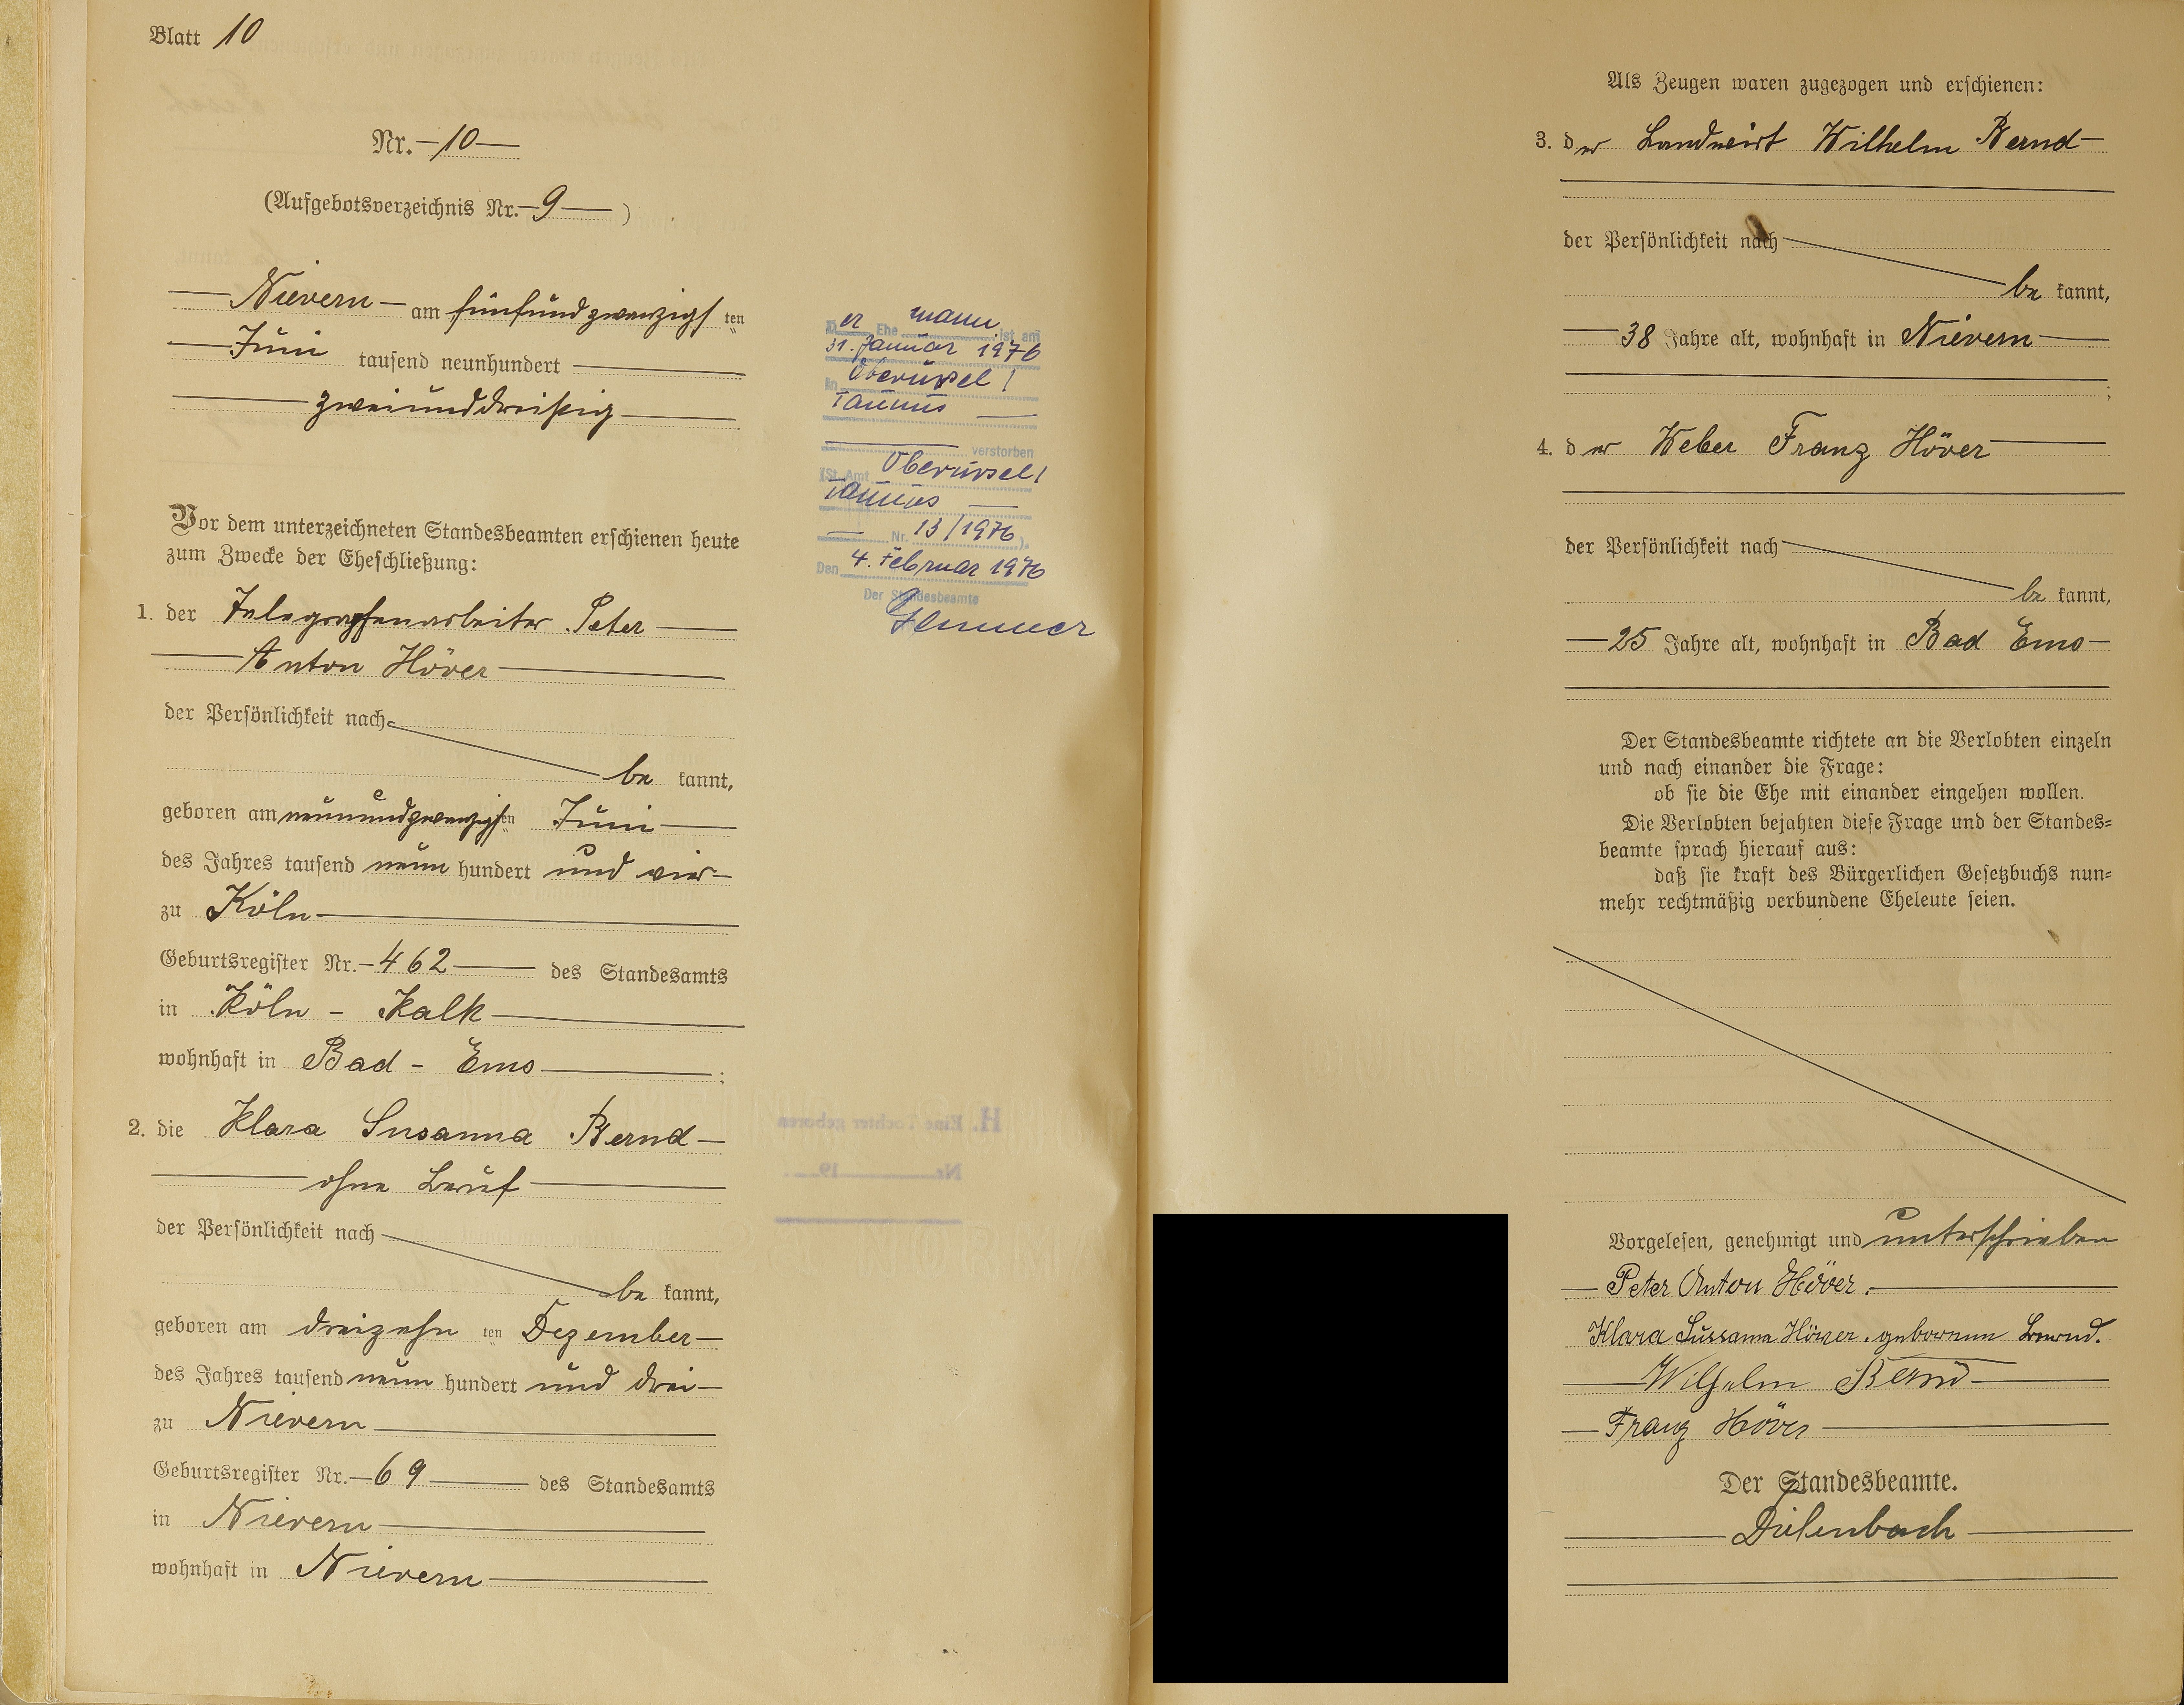 Blatt 10
Nr. 10
(Aufgebotsverzeichnis Nr. 9 )
Nievern am fünfundzwanzigsten
Juni tausend neunhundert
zweiunddreißig
Vor dem unterzeichneten Standesbeamten erschienen heute
zum Zwecke der Eheschließung:
1. der Telegraphenarbeiter Peter
Anton Höver
der Persönlichkeit nach
be kannt,
geboren am neunundzwanzigsten Juni
des Jahres tausend neun hundert und vier
zu Köln
Geburtsregister Nr. 462 des Standesamts
in Köln - Kalk
wohnhaft in Bad - Ems ;
2. die Klara Susanna Bernd
ohne Beruf
der Persönlichkeit nach
be kannt,
geboren am dreizehn ten Dezember
des Jahres tausend neun hundert und drei
zu Nievern
Geburtsregister Nr. 69 des Standesamts
in Nievern
wohnhaft in Nievern
Der Ehemann ist am
31. Januar 1976
in Oberursel/
Taunus
verstorben
(St.Amt Oberursel/
Taunus
Nr. 13/1976 ).
Den 4. Februar 1976
Der Standesbeamte
H. Eine Tochter geboren
Nr. 19
Als Zeugen waren zugezogen und erschienen:
3. der Landwirt Wilhelm Bernd
der Persönlichkeit nach
be kannt,
38 Jahre alt, wohnhaft in Nievern
;
4. der Weber Franz Höver
der Persönlichkeit nach
be kannt,
25 Jahre alt, wohnhaft in Bad Ems
Der Standesbeamte richtete an die Verlobten einzeln
und nach einander die Frage:
ob sie die Ehe mit einander eingehen wollen.
Die Verlobten bejahten diese Frage und der Standes=
beamte sprach hierauf aus:
daß sie kraft des Bürgerlichen Gesetzbuchs nun=
mehr rechtmäßig verbundene Eheleute seien.
Vorgelesen, genehmigt und unterschrieben
Peter Anton Höver.
Klara Sussanna Höver. geborenen Bernd.
Wilhelm Bernd
Franz Höver
Der Standesbeamte.